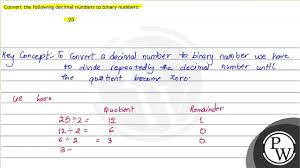 Convert the following decimal numbers to binary numbers:
25
Key Concept:- To convert a decimal number to binary number we have
to divide repeatedly the decimal number until
the quotient become zero.
we have
Quotient Remainder
25÷2= 12 1
12÷2= 6 0
6÷2= 3 0
3÷
PW